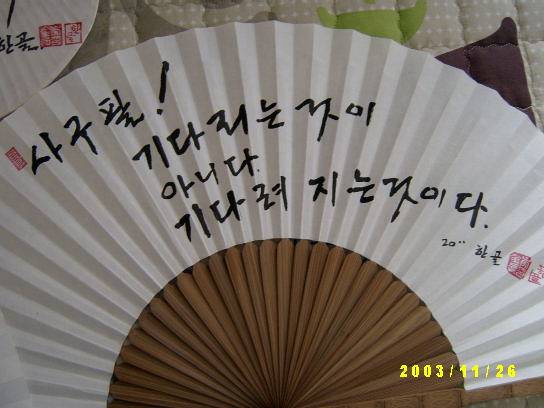 한골
사구팔!
기다리는 것이
아니다.
기다려 지는것이다.
20.. 한골
2003/11/26